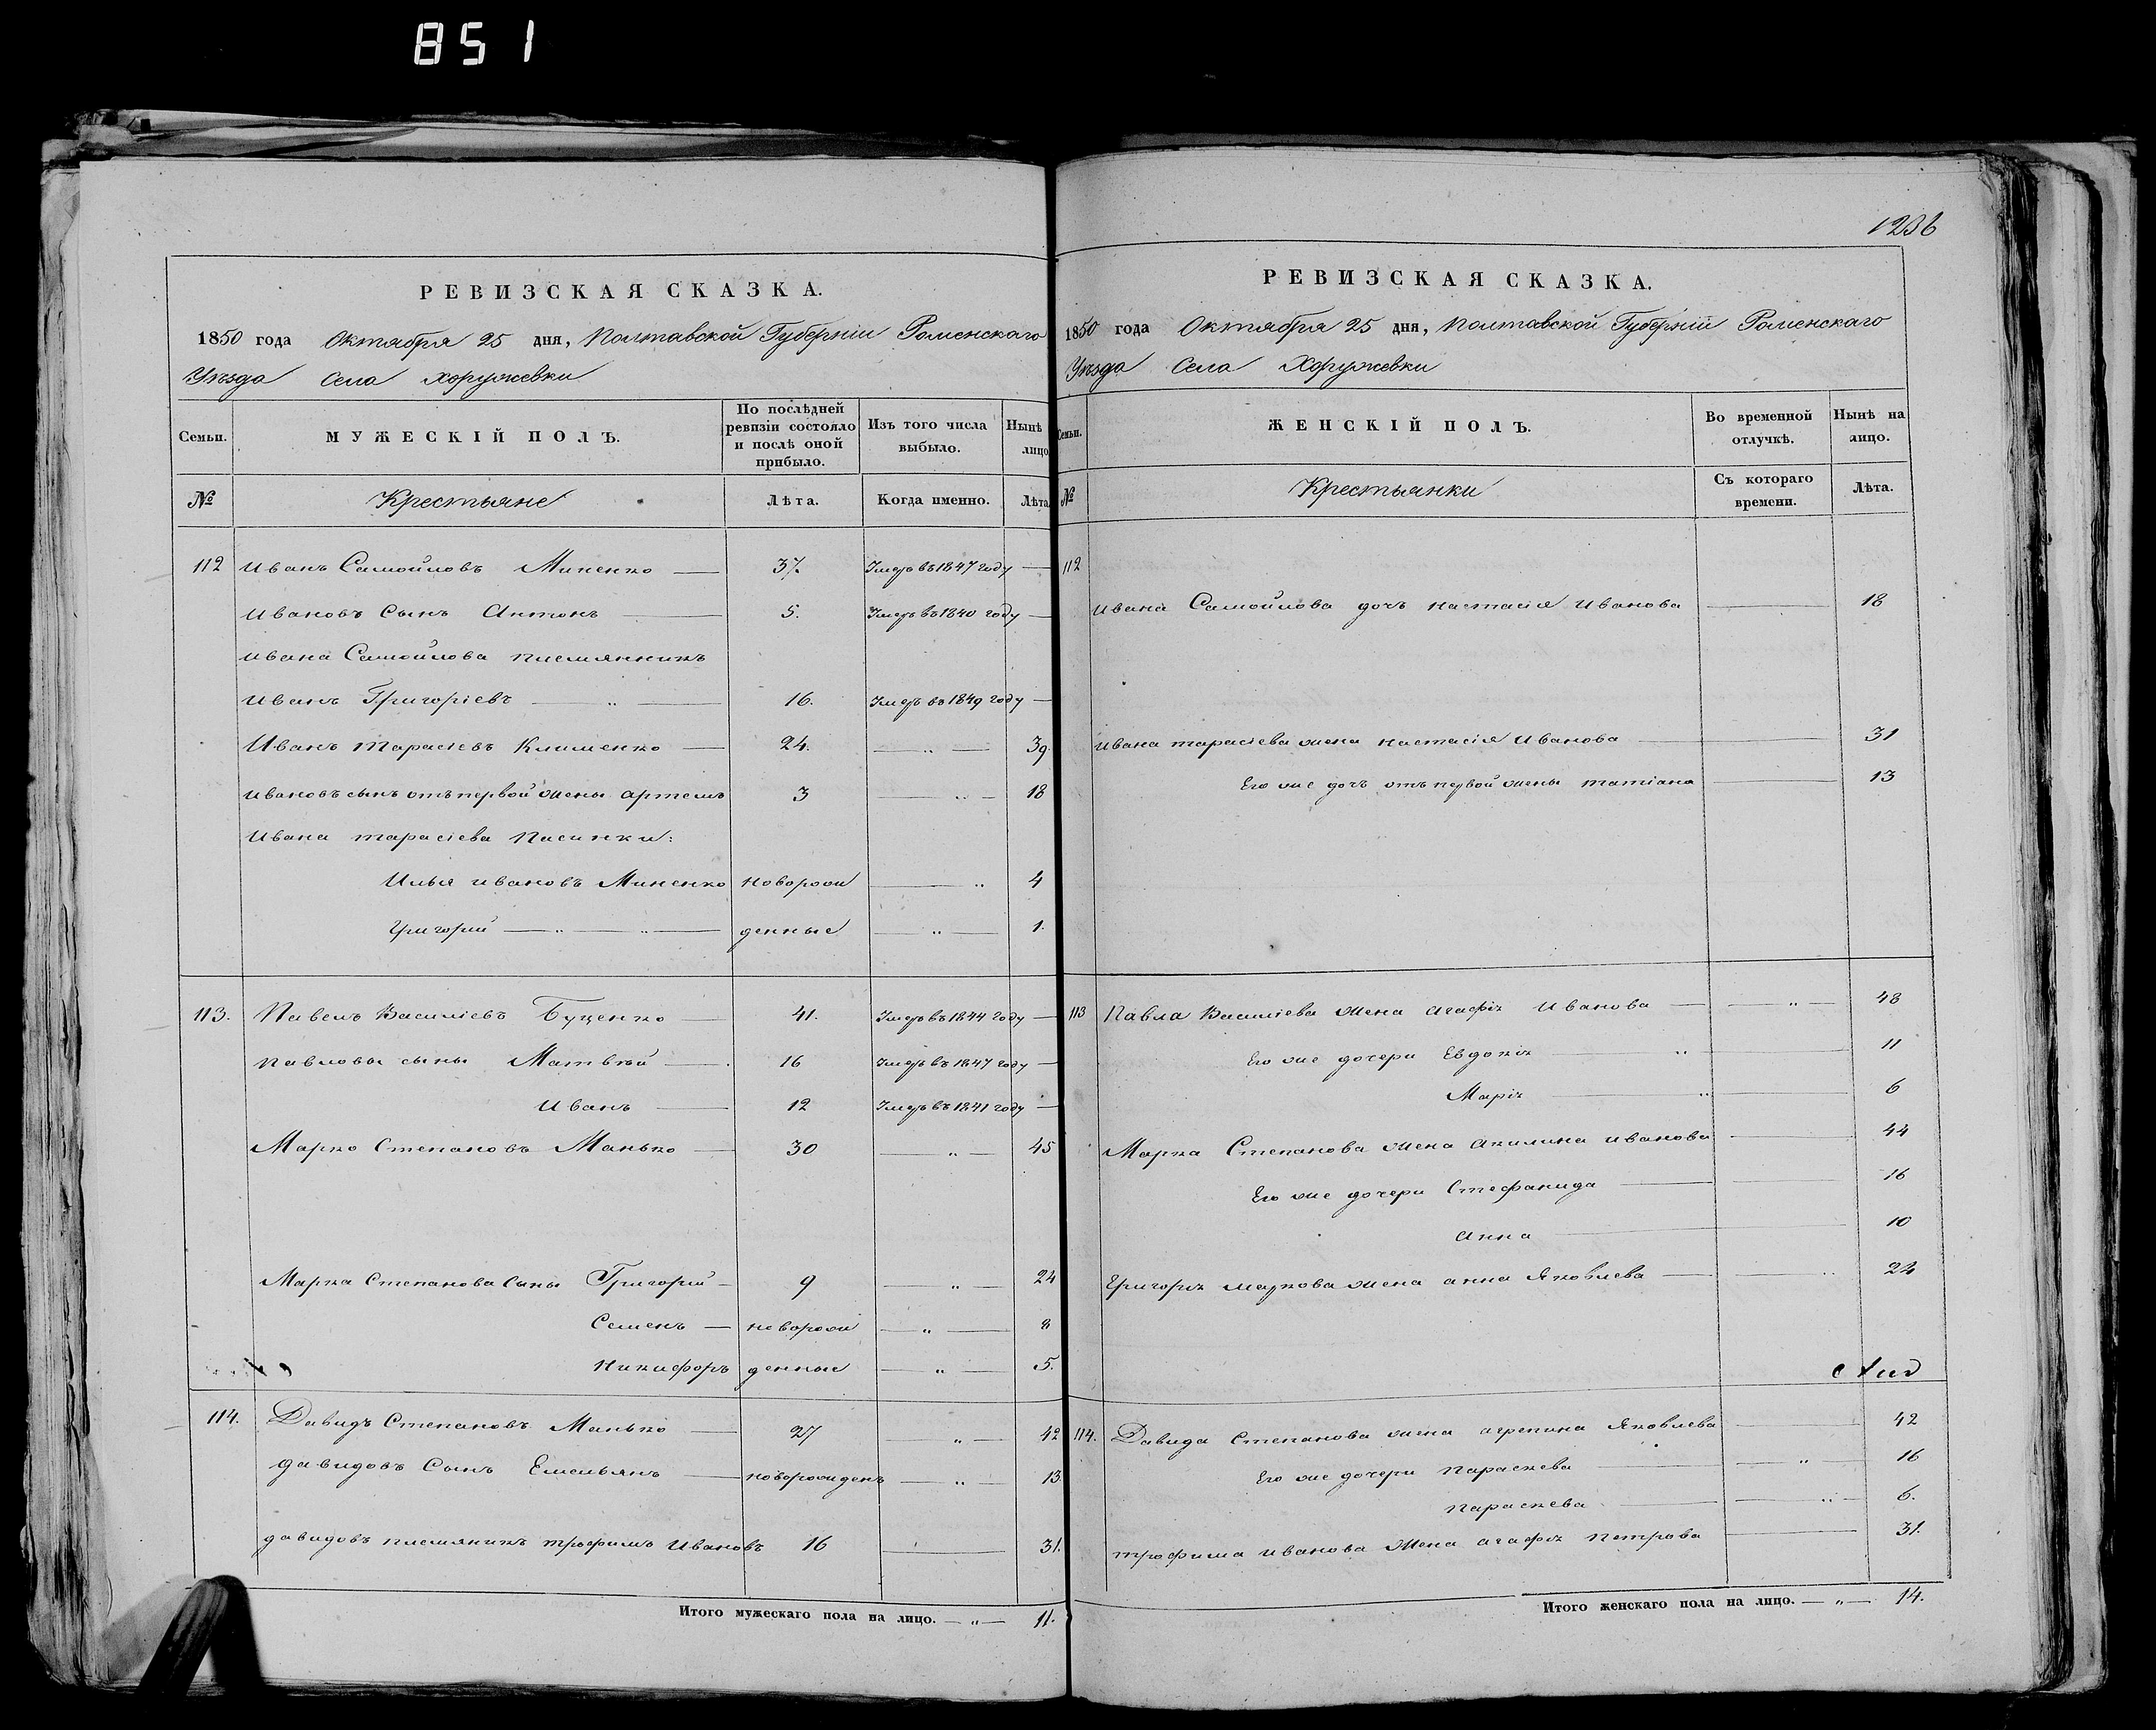 851
РЕВИЗСКАЯ СКАЗКА.
1850 года Октября 25 дня, Полтавской Губерніи Роменскаго
Уѣзда Села Хоружевки
Семьи. МУЖЕСКІЙ ПОЛЪ. По послѣдней ревизіи состояло и послѣ оной прибыло. Изъ того числа выбыло. Нынѣ лицо
№ Крестьяне Лѣта. Когда именно. Лѣта
112 Иванъ Самойловъ Миненко — 37. Умеръ въ 1847 году —
Ивановъ Сынъ Антонъ — 5. Умеръ въ 1840 году —
Ивана Самойлова племянникъ
Иванъ Григоріевъ — „ — 16. Умеръ въ 1849 году —
Иванъ Тарасіевъ Клименко — 24. — „ — 39.
Ивановъ сынъ отъ первой жены Артемъ 3 — „ — 18
Ивана Тарасіева Пасинки:
Илья Ивановъ Миненко новорож — „ 4
Григорій — „ — „ — денные — „ — 1.
113. Павелъ Василіевъ Буценко — 41. Умеръ въ 1844 году —
Павловы сыны Матвѣй — 16 Умеръ въ 1847 году —
Иванъ — 12 Умеръ въ 1841 году —
Марко Степановъ Манько — 30 — „ — 45
Марка Степанова Сыны Григорій — 9 — „ — 24
Семенъ — новорож — „ — 8
Никифоръ денные — „ — 5.
114. Давидъ Степановъ Манько — 27 — „ — 42
Давидовъ Сынъ Емельянъ — новорожденъ — „ — 13
Давидовъ племяникъ Трофимъ Ивановъ 16 — 31.
Итого мужескаго пола на лицо. — „ — 11.
1236
РЕВИЗСКАЯ СКАЗКА.
1850 года Октября 25 дня, Полтавской Губерніи Роменскаго
Уѣзда Села Хоружевки
Семьи. ЖЕНСКІЙ ПОЛЪ. Во временной отлучкѣ. Нынѣ на лицо.
№ Крестьянки Съ котораго времени. Лѣта.
112
Ивана Самойлова дочь Настасія Иванова — 18
Ивана Тарасіева жена Настасія Иванова — 31
Его же дочь отъ первой жены Татіана — 13
113 Павла Василіева Жена Агафія Иванова — „ — 48
Его же дочери Евдокія — „ — 11
Марія — „ — 6
Марка Степанова жена Акилина Иванова — 44
Его же дочери Стефанида — 16
Анна — 10
Григорія Маркова жена Анна Яковлева — „ 24
114. Давида Степанова жена Агрепина Яковлева — 42
Его же дочери Параскева — „ — 16
Параскева — „ — 6.
Трофима Иванова Жена Агафія Петрова — 31.
Итого женскаго пола на лицо. — „ — 14.